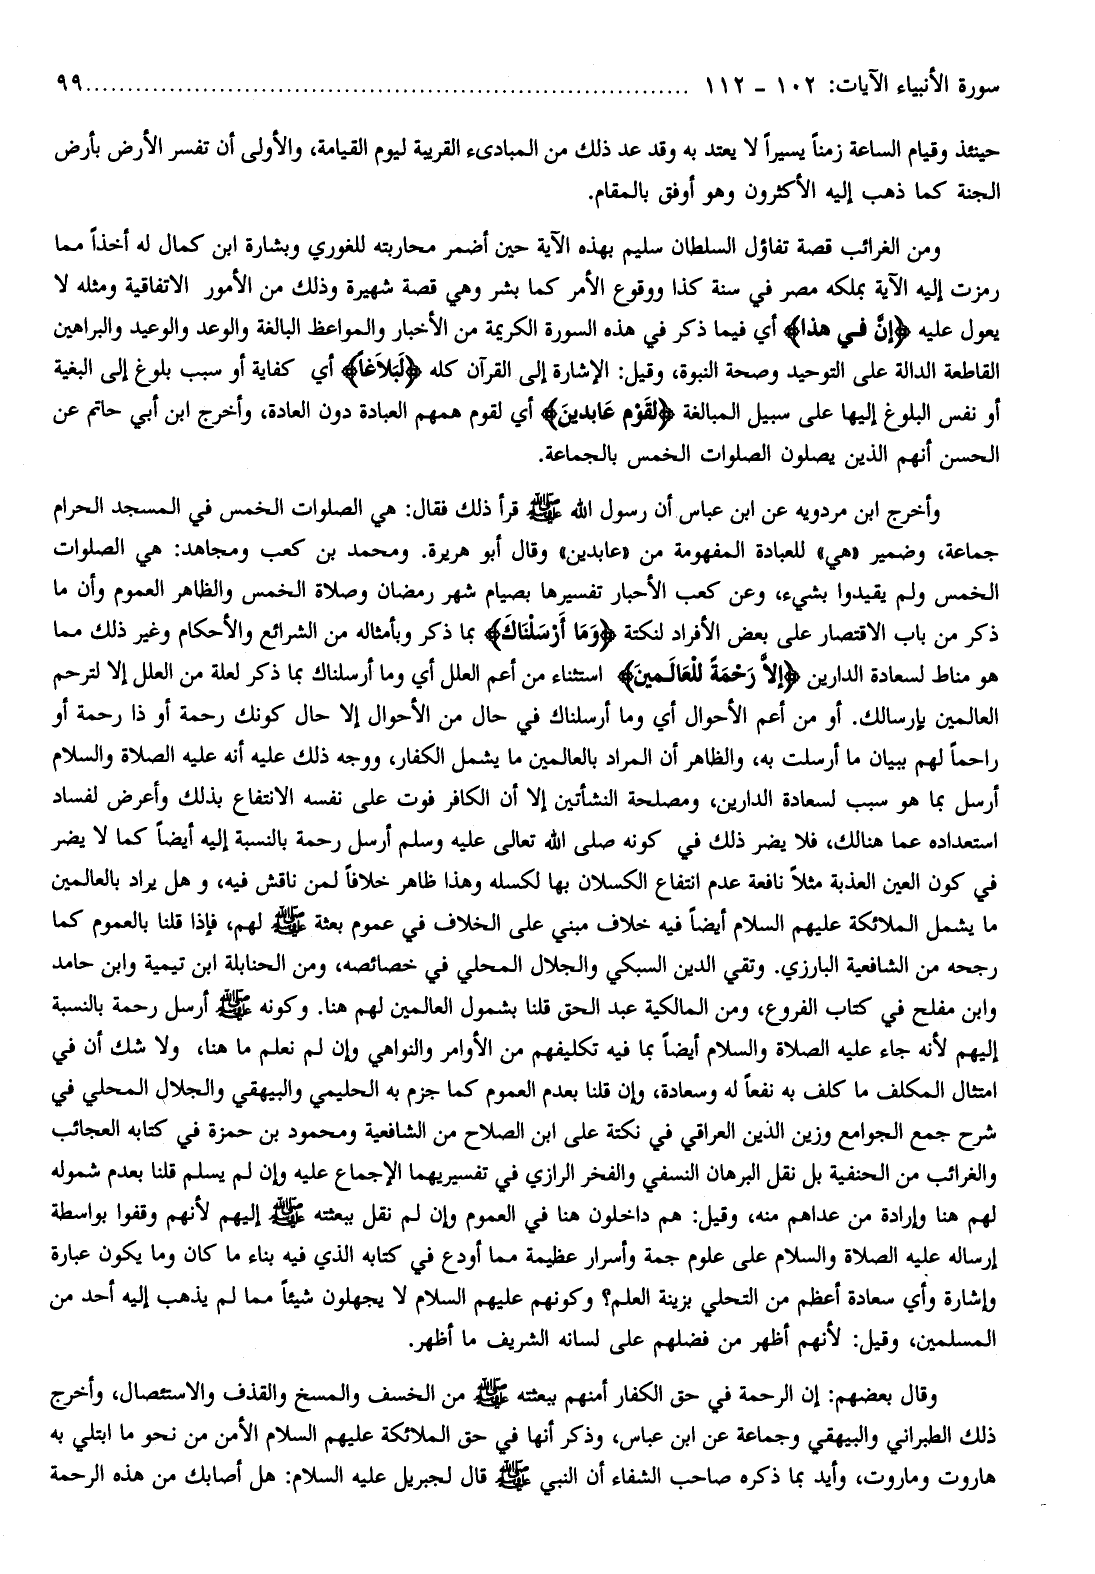 سورة الأنبياء الآيات: ١٠٢ ـ ١١٢ ........................................................................ ٩٩
حينئذ وقيام الساعة زمناً يسيراً لا يعتد به وقد عد ذلك من المبادىء القريبة ليوم القيامة، والأولى أن تفسر الأرض بأرض
الجنة كما ذهب إليه الأكثرون وهو أوفق بالمقام.
ومن الغرائب قصة تفاؤل السلطان سليم بهذه الآية حين أضمر محاربته للغوري وبشارة ابن كمال له أخذاً مما
رمزت إليه الآية بملكه مصر في سنة كذا ووقوع الأمر كما بشر وهي قصة شهيرة وذلك من الأمور الاتفاقية ومثله لا
يعول عليه ﴿إنَّ في هذا﴾ أي فيما ذكر في هذه السورة الكريمة من الأخبار والمواعظ البالغة والوعد والوعيد والبراهين
القاطعة الدالة على التوحيد وصحة النبوة، وقيل: الإشارة إلى القرآن كله ﴿لَبَلاَغاً﴾ أي كفاية أو سبب بلوغ إلى البغية
أو نفس البلوغ إليها على سبيل المبالغة ﴿لقَوْم عَابدينَ﴾ أي لقوم همهم العبادة دون العادة، وأخرج ابن أبي حاتم عن
الحسن أنهم الذين يصلون الصلوات الخمس بالجماعة.
وأخرج ابن مردويه عن ابن عباس أن رسول الله ﷺ قرأ ذلك فقال: هي الصلوات الخمس في المسجد الحرام
جماعة، وضمير «هي» للعبادة المفهومة من «عابدين» وقال أبو هريرة. ومحمد بن كعب ومجاهد: هي الصلوات
الخمس ولم يقيدوا بشيء، وعن كعب الأحبار تفسيرها بصيام شهر رمضان وصلاة الخمس والظاهر العموم وأن ما
ذكر من باب الاقتصار على بعض الأفراد لنكتة ﴿وَمَا أَرْسَلْنَاكَ﴾ بما ذكر وبأمثاله من الشرائع والأحكام وغير ذلك مما
هو مناط لسعادة الدارين ﴿إلاَّ رَحْمَةً للْعَالَمينَ﴾ استثناء من أعم العلل أي وما أرسلناك بما ذكر لعلة من العلل إلا لترحم
العالمين بإرسالك. أو من أعم الأحوال أي وما أرسلناك في حال من الأحوال إلا حال كونك رحمة أو ذا رحمة أو
راحماً لهم ببيان ما أرسلت به، والظاهر أن المراد بالعالمين ما يشمل الكفار، ووجه ذلك عليه أنه عليه الصلاة والسلام
أرسل بما هو سبب لسعادة الدارين، ومصلحة النشأتين إلا أن الكافر فوت على نفسه الانتفاع بذلك وأعرض لفساد
استعداده عما هنالك، فلا يضر ذلك في كونه صلى الله تعالى عليه وسلم أرسل رحمة بالنسبة إليه أيضاً كما لا يضر
في كون العين العذبة مثلاً نافعة عدم انتفاع الكسلان بها لكسله وهذا ظاهر خلافاً لمن ناقش فيه، و هل يراد بالعالمين
ما يشمل الملائكة عليهم السلام أيضاً فيه خلاف مبني على الخلاف في عموم بعثة ﷺ لهم، فإذا قلنا بالعموم كما
رجحه من الشافعية البارزي. وتقي الدين السبكي والجلال المحلي في خصائصه، ومن الحنابلة ابن تيمية وابن حامد
وابن مفلح في كتاب الفروع، ومن المالكية عبد الحق قلنا بشمول العالمين لهم هنا. وكونه ﷺ أرسل رحمة بالنسبة
إليهم لأنه جاء عليه الصلاة والسلام أيضاً بما فيه تكليفهم من الأوامر والنواهي وإن لم نعلم ما هنا، ولا شك أن في
امتثال المكلف ما كلف به نفعاً له وسعادة، وإن قلنا بعدم العموم كما جزم به الحليمي والبيهقي والجلال المحلي في
شرح جمع الجوامع وزين الدين العراقي في نكتة على ابن الصلاح من الشافعية ومحمود بن حمزة في كتابه العجائب
والغرائب من الحنفية بل نقل البرهان النسفي والفخر الرازي في تفسيريهما الإجماع عليه وإن لم يسلم قلنا بعدم شموله
لهم هنا وإرادة من عداهم منه، وقيل: هم داخلون هنا في العموم وإن لم نقل ببعثته ﷺ إليهم لأنهم وقفوا بواسطة
إرساله عليه الصلاة والسلام على علوم جمة وأسرار عظيمة مما أودع في كتابه الذي فيه بناء ما كان وما يكون عبارة
وإشارة وأي سعادة أعظم من التحلي بزينة العلم؟ وكونهم عليهم السلام لا يجهلون شيئاً مما لم يذهب إليه أحد من
المسلمين، وقيل: لأنهم أظهر من فضلهم على لسانه الشريف ما أظهر.
وقال بعضهم: إن الرحمة في حق الكفار أمنهم ببعثته ﷺ من الخسف والمسخ والقذف والاستئصال، وأخرج
ذلك الطبراني والبيهقي وجماعة عن ابن عباس، وذكر أنها في حق الملائكة عليهم السلام الأمن من نحو ما ابتلي به
هاروت وماروت، وأيد بما ذكره صاحب الشفاء أن النبي ﷺ قال لجبريل عليه السلام: هل أصابك من هذه الرحمة